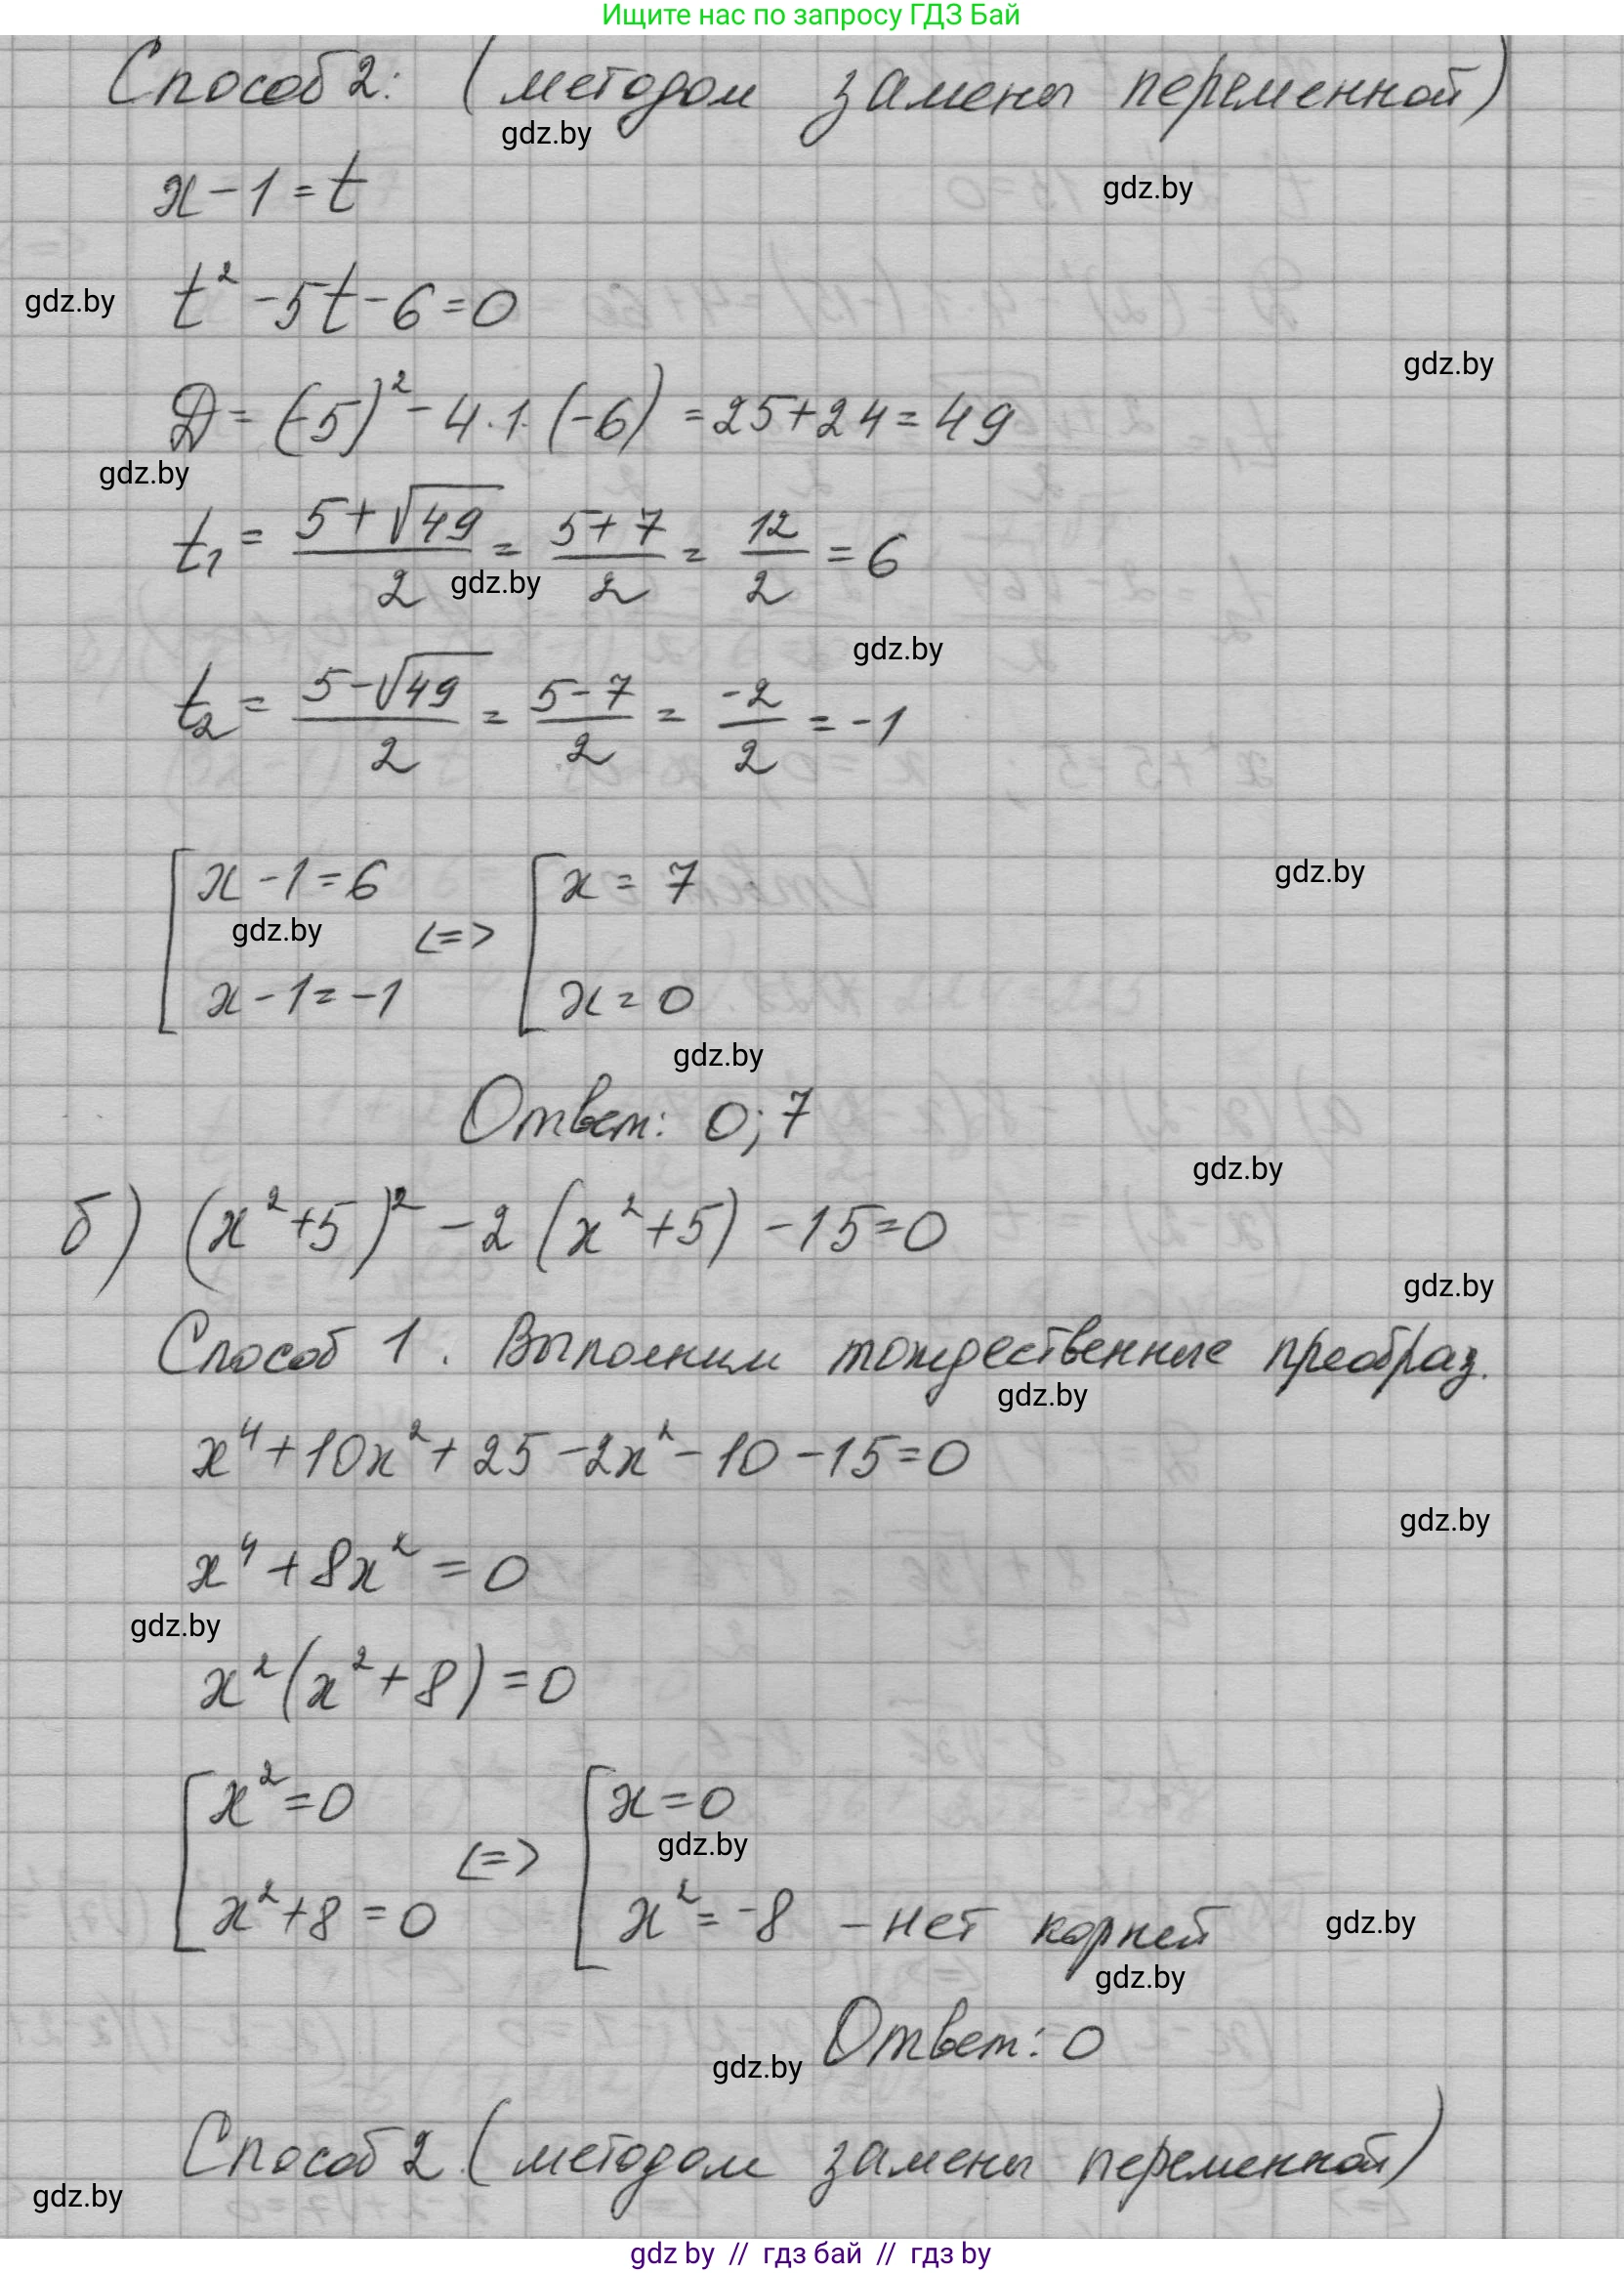 Ищите нас по запросу ГДЗ Бай
Способ 2: (методом замены переменной)
gdz.by
x-1=t
gdz.by
t²-5t-6=0
gdz.by
gdz.by
D=(-5)²-4·1·(-6)=25+24=49
gdz.by
t₁=(5+√49)/2=(5+7)/2=12/2=6
gdz.by
gdz.by
t₂=(5-√49)/2=(5-7)/2=-2/2=-1
[x-1=6 [x=7
gdz.by
gdz.by <=>
x-1=-1 x=0
gdz.by
Ответ: 0;7
gdz.by
б) (x²+5)²-2(x²+5)-15=0
gdz.by
Способ 1. Выполним тождественные преобраз.
gdz.by
x⁴+10x²+25-2x²-10-15=0
gdz.by
x⁴+8x²=0
gdz.by
x²(x²+8)=0
[x²=0 [x=0
<=> gdz.by
x²+8=0 x²=-8 -нет корней
gdz.by
gdz.by
Ответ: 0
gdz.by
Способ 2 (методом замены переменной)
gdz.by
gdz by // гдз бай // гдз by